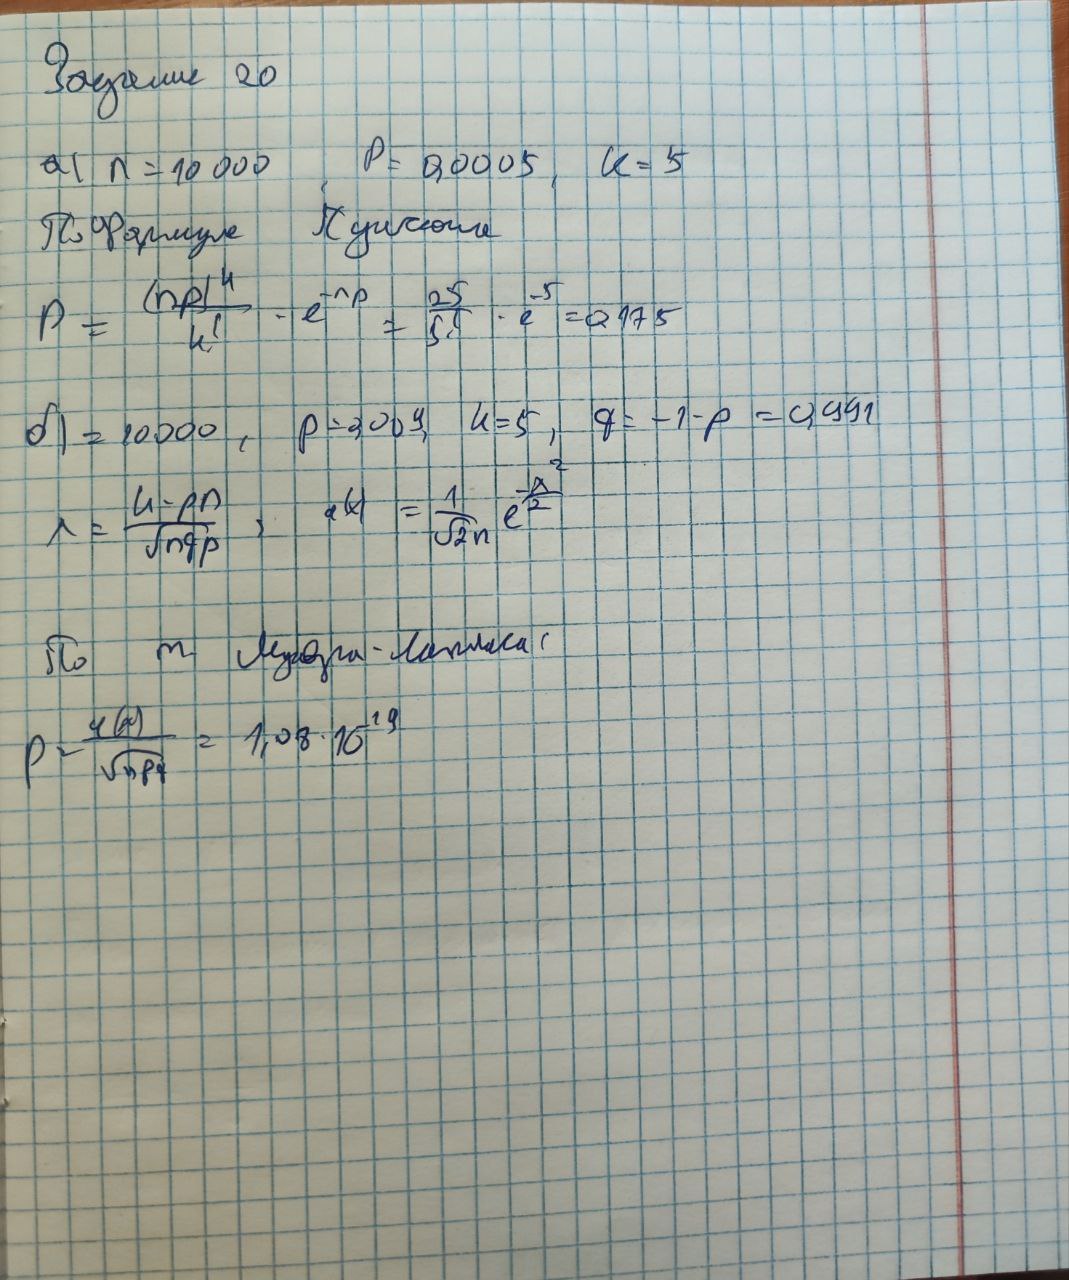 Задание 20
а) n = 10 000, P = 0,0005, k = 5
По формуле Пуассона
P = (np)^k / k! · e^-np = 25 / 5! · e^-5 = 0,175
б) = 10000, p = 0,009, k = 5, q = -1-p = 0,991
x = k-pn / √nqp, (x) = 1 / √2π e^-x²/2
По т Муавра-Лапласа:
P = φ(x) / √npq = 1,08 · 10^-19